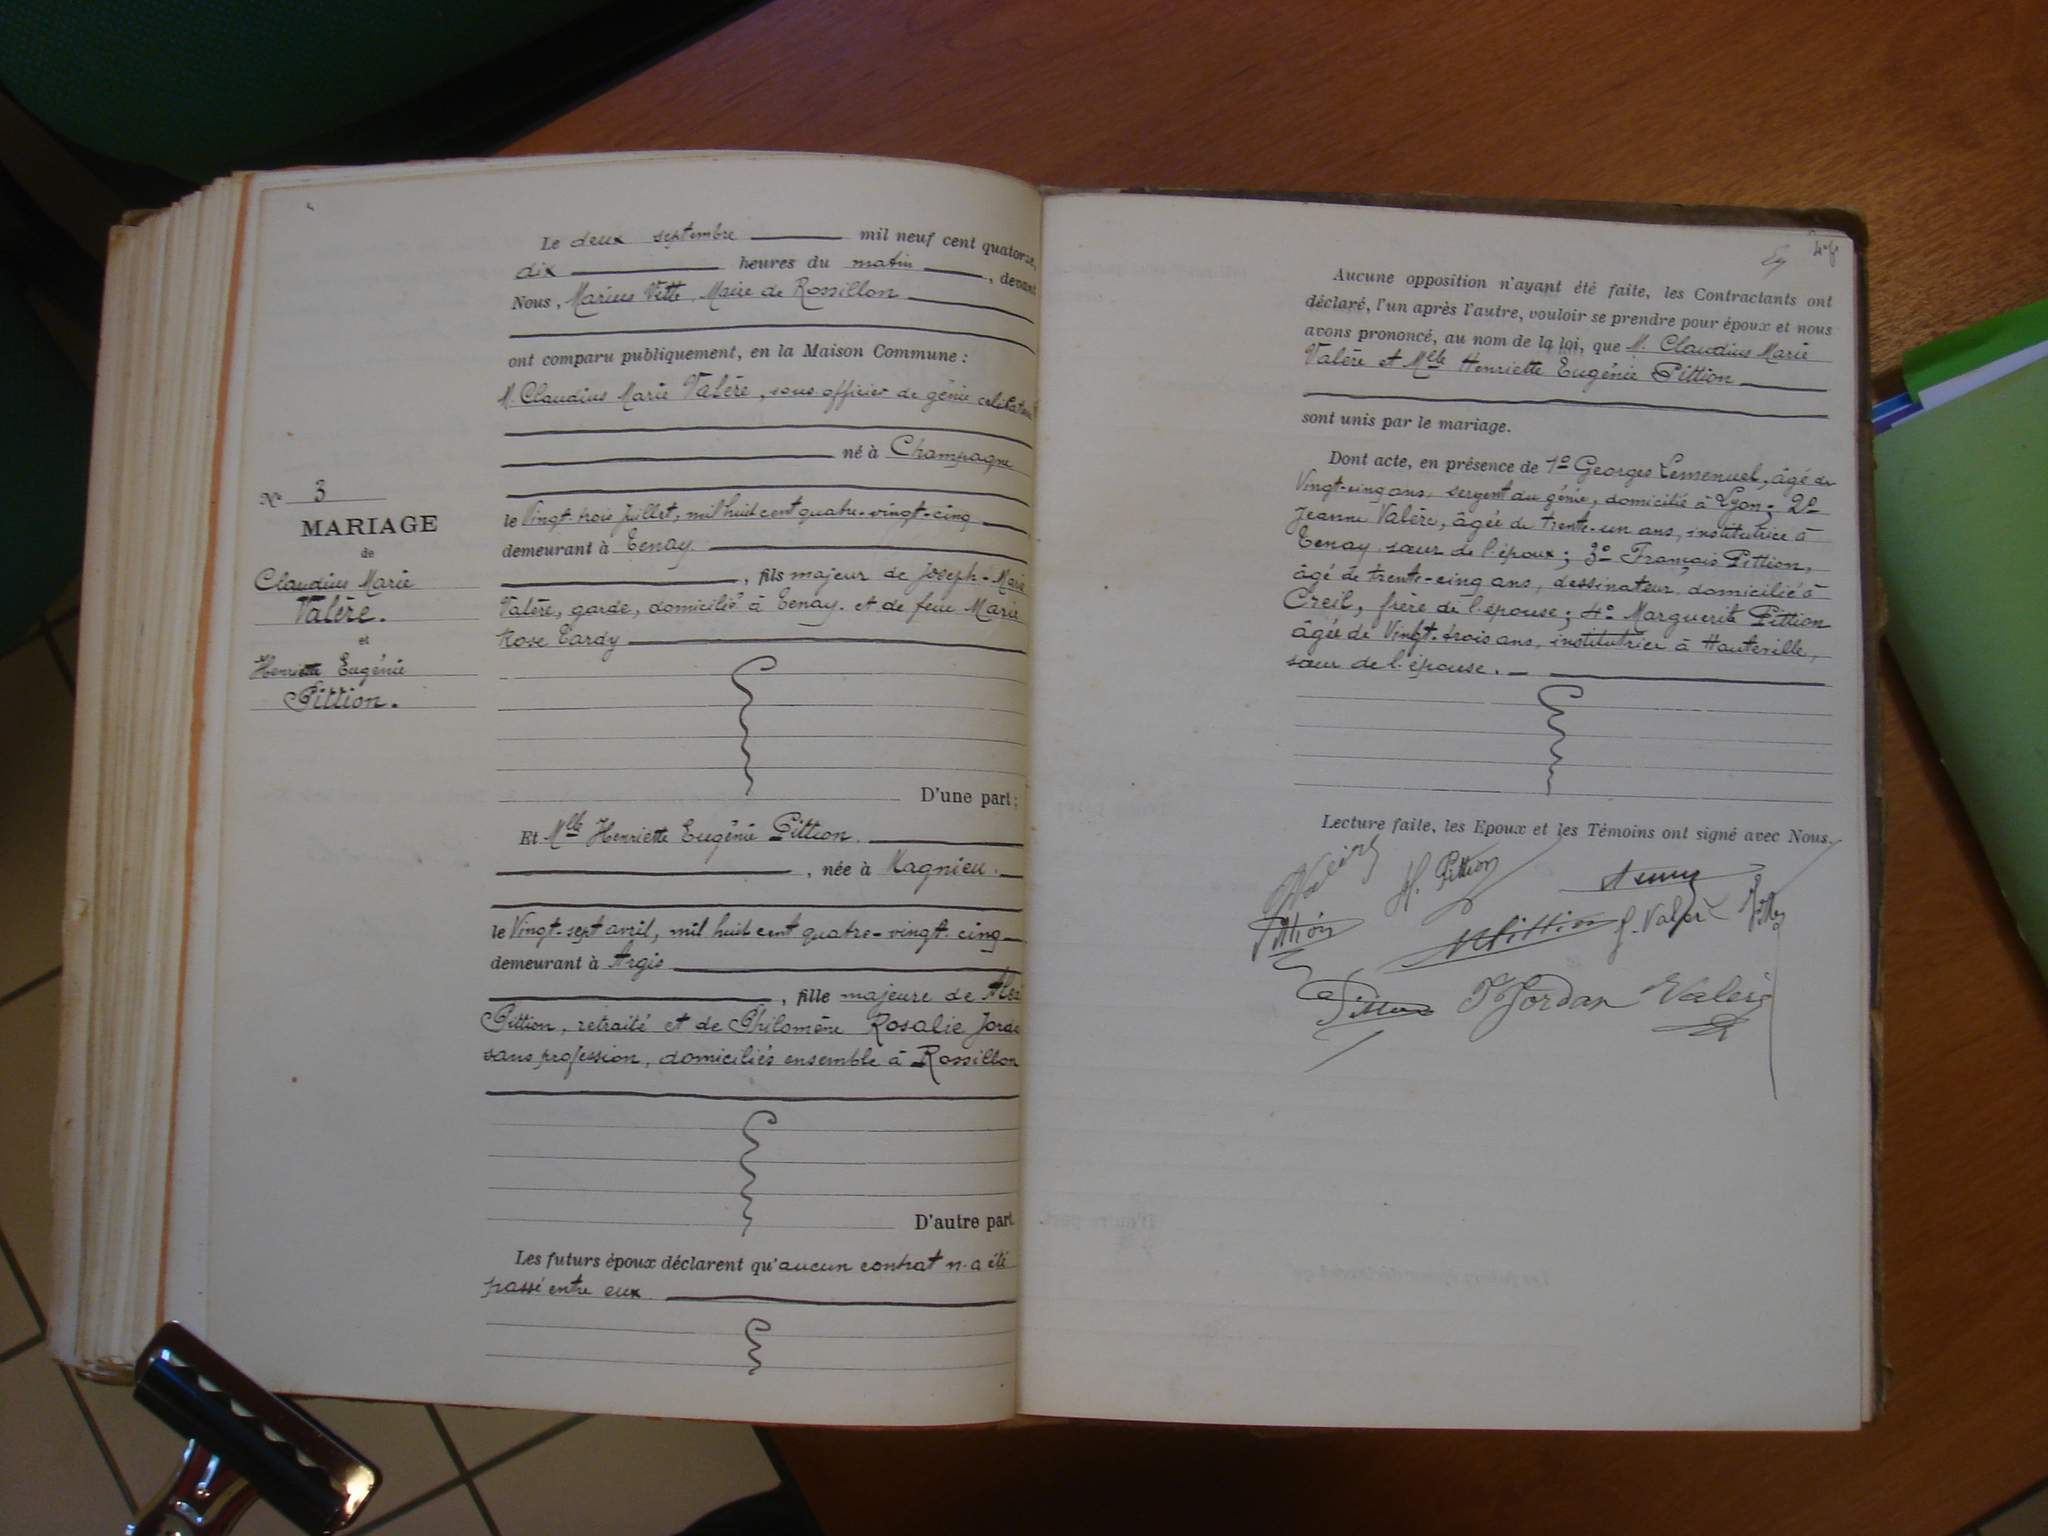 Le deux septembre mil neuf cent quatorze,
dix heures du matin, devant
Nous, Marius Vette, Maire de Rossillon
ont comparu publiquement, en la Maison Commune :
M. Claudius Marie Valère, sous-officier de génie célibataire
né à Champagne
le Vingt-trois Juillet, mil huit cent quatre-vingt-cinq
demeurant à Tenay.
, fils majeur de Joseph-Marie
Valère, garde, domicilié à Tenay. et de feue Marie
Rose Tardy
D'une part ;
Nº 3
MARIAGE
de
Claudius Marie
Valère.
et
Henriette Eugénie
Pittion.
Et Melle Henriette Eugénie Pittion.
, née à Magnieu.
le Vingt-sept avril, mil huit cent quatre-vingt-cinq
demeurant à Argis
, fille majeure de
Pittion, retraité et de Philomène Rosalie Jorda
sans profession, domiciliés ensemble à Rossillon
D'autre part.
Les futurs époux déclarent qu'aucun contrat n'a été
passé entre eux
Aucune opposition n'ayant été faite, les Contractants ont
déclaré, l'un après l'autre, vouloir se prendre pour époux et nous
avons prononcé, au nom de la loi, que M. Claudius Marie
Valère et Melle Henriette Eugénie Pittion
sont unis par le mariage.
Dont acte, en présence de 1º Georges Lemenuel, âgé de
Vingt-cinq ans, sergent du génie, domicilié à Lyon ; 2º
Jeanne Valère, âgée de trente-un ans, institutrice à
Tenay. sœur de l'époux ; 3º François Pittion,
âgé de trente-cinq ans, dessinateur, domicilié à
Creil, frère de l'épouse ; 4º Marguerite Pittion
âgée de Vingt-trois ans, institutrice à Hauteville,
sœur de l'épouse.
Lecture faite, les Epoux et les Témoins ont signé avec Nous.
H. Pittion
Pittion
Pittion J. Valère
Jordan Valère